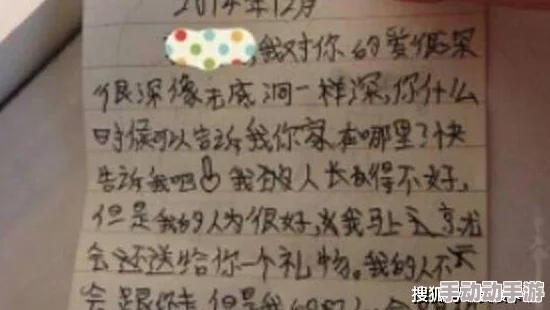 2014年12月
,我对你的爱很深
很深像无底洞一样深,你什么
时候可以告诉我你家在哪里了快
告诉我吧 我的人长的得不好,
但是我的人为很好,我马上
会还送给你一个礼物。我的人不
会跟你走,但是我的
搜狐号
手动动手游